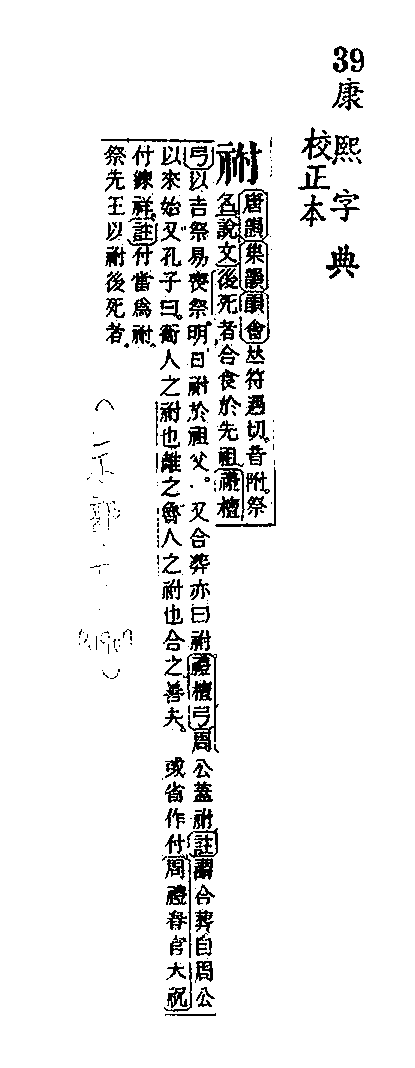 39
康熙字典
校正本
祔
唐韻集韻韻會𠀤符遇切。音附。祭
名說文後死者合食於先祖禮檀
弓以吉祭易喪祭。明日祔於祖父。 又合葬亦曰祔禮檀弓周公蓋祔註謂合葬自周公
以來始又孔子曰。衞人之祔也離之魯人之祔也合之善夫。 或省作付周禮春官大祝
付練祥。註付當爲祔。
祭先王以祔後死者。